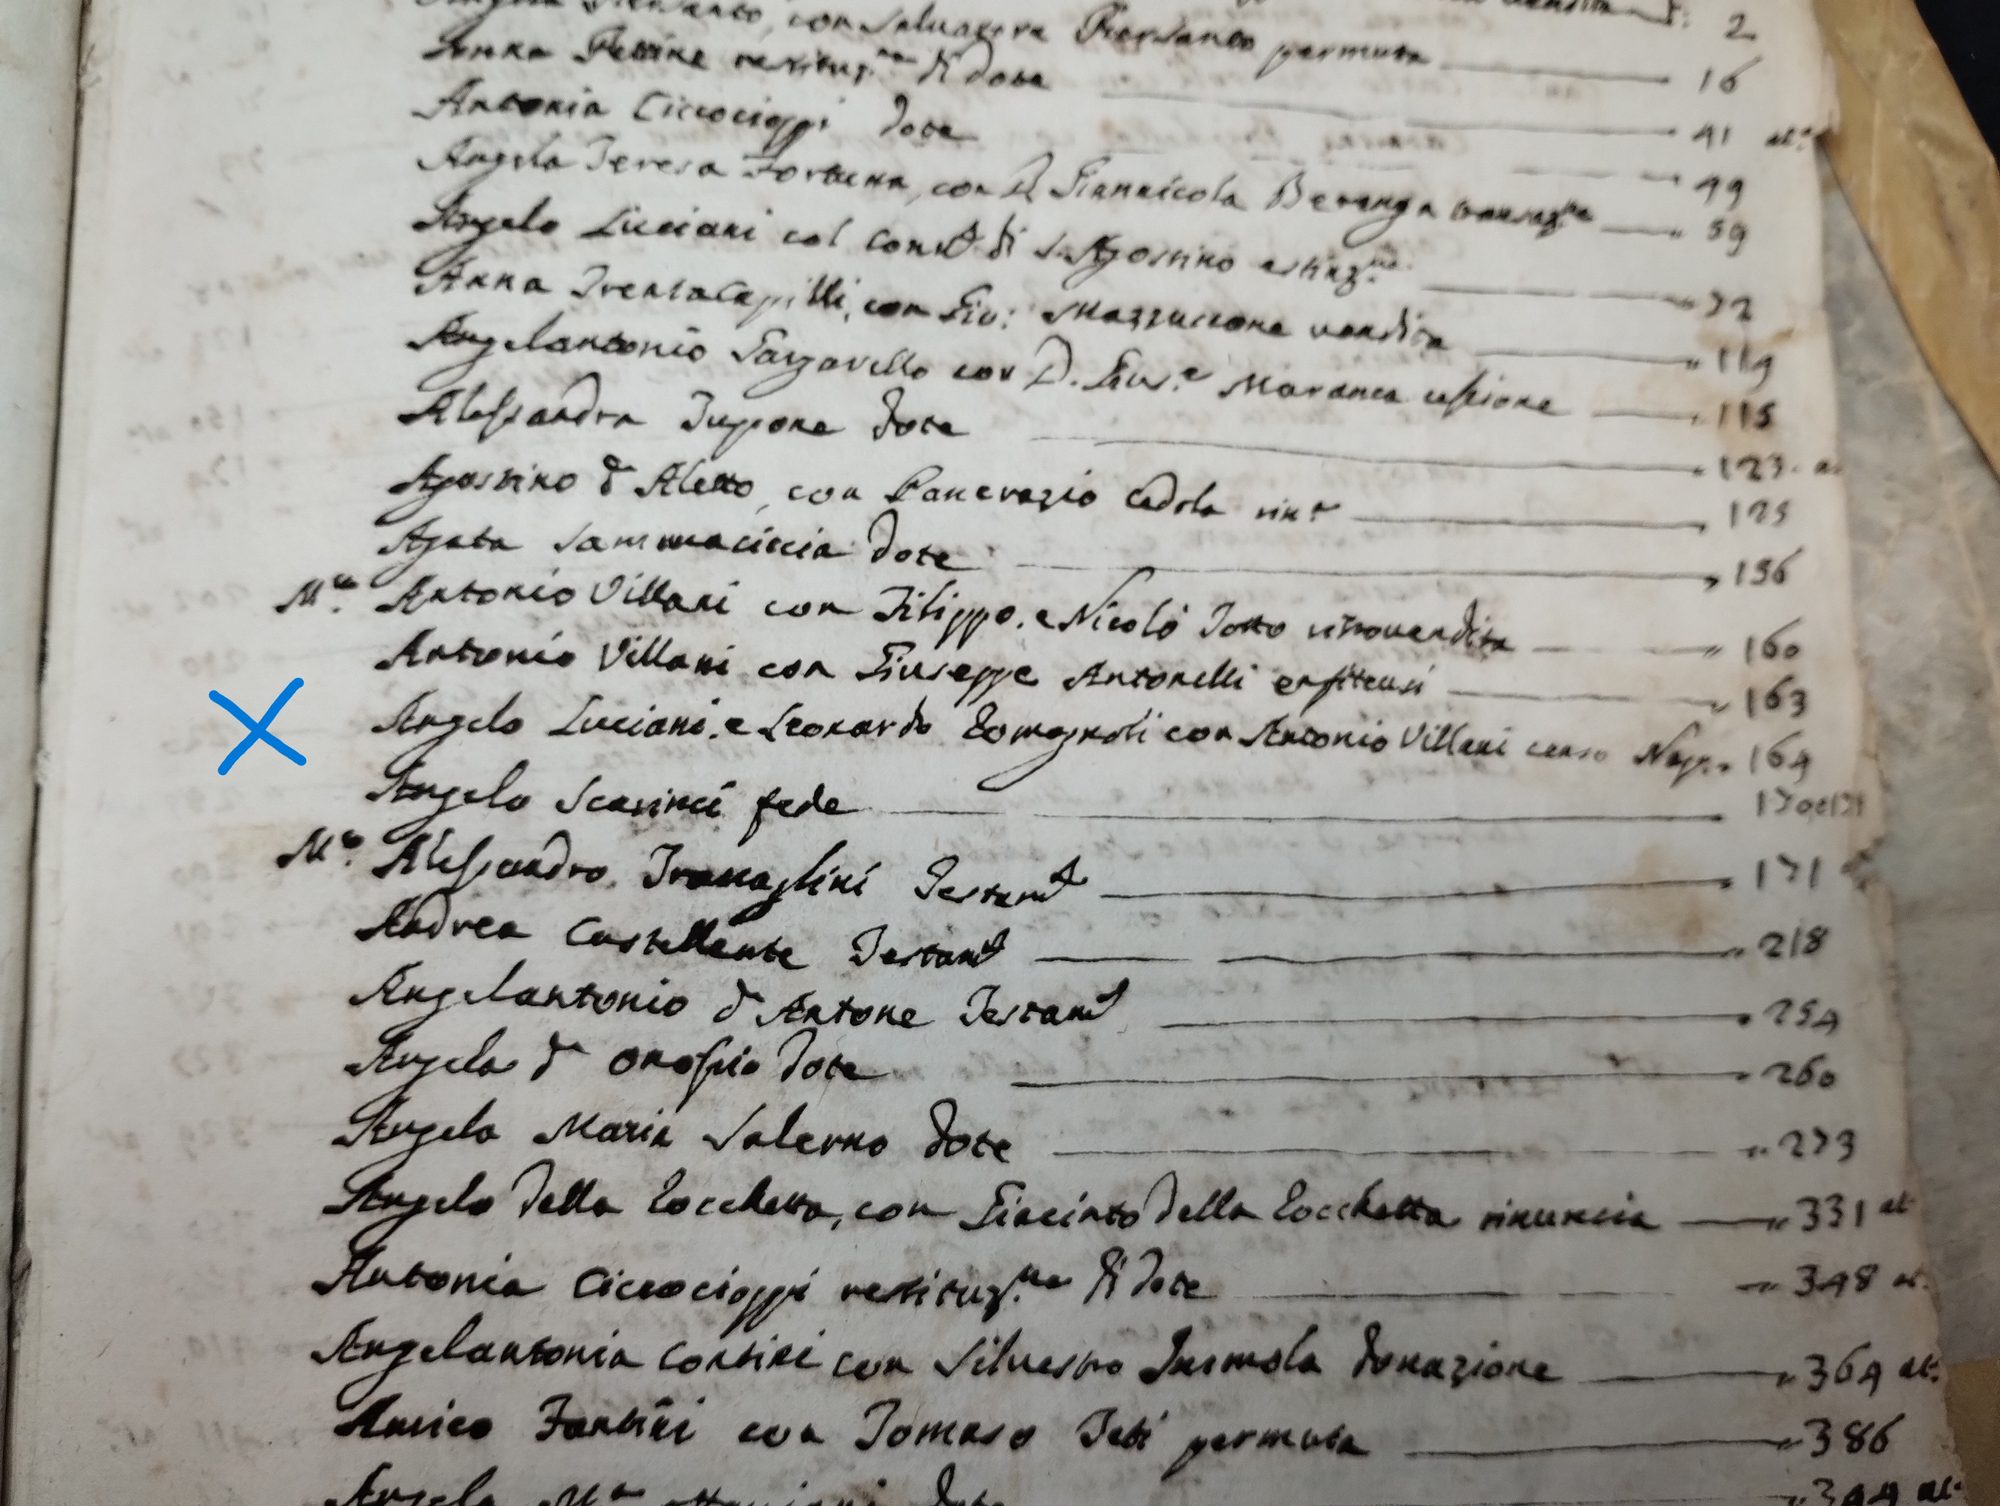 con Salvatore Piersante permuta 2
Anna Pettine restituz.ne di dote 16
Antonia Ciccocioppi dote 41 at.o
Angela Teresa Fortuna, con D. Giannicola Beranga transaz.ne 49
Angelo Luciani col Conv.to di S. Agostino estinz.ne 59
Anna Trentacapilli, con Gio: Mazzuccone vendita 72
Angelantonio Garzarello con D. Gius.e Maranca cessione 114
Alessandra Iupone dote 115
Agostino d'Aletto, con Pancrazio Cedola rin.a 123
Agata Sammaciccia dote 125
M.ro Antonio Villani con Filippo, e Nicolò Totto retrovendita 156
Antonio Villani con Giuseppe Antonelli enfiteusi 160
Angelo Luciani, e Leonardo Romagnoli con Antonio Villani censo Nap. 163
Angelo Scarinci fede 164
M.ro Alessandro Tramaglini Testam.to 171
Andrea Castellente Testam.to 218
Angelantonio d'Antone Testam.to 254
Angela d'Onofrio dote 260
Angela Maria Salerno dote 273
Angelo della Rocchetta, con Giacinto della Rocchetta rinuncia 331 at.
Antonia Ciccocioppi restituz.ne di dote 348 at.
Angelantonia Contini con Silvestro Iusmola donazione 364 at.
Amico Fantini con Tomaso Teti permuta 386
Angela M.a dote 394 at.